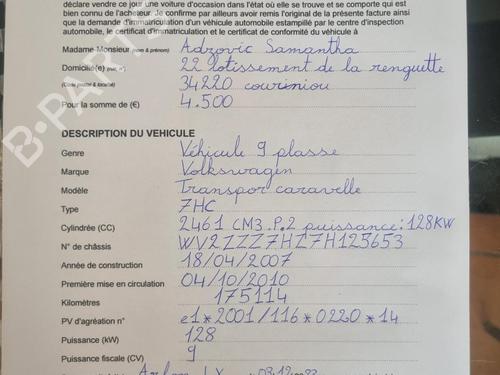 déclare vendre ce jour une voiture d'occasion dans l'état où elle se trouve et se comporte qui est
bien connu de l'acheteur. Je confirme par ailleurs avoir remis l'original de la présente facture ainsi
que la demande d'immatriculation d'un véhicule automobile estampillé par le centre d'inspection
automobile, le certificat d'immatriculation et le certificat de conformité du véhicule à
Madame Monsieur (nom & prénom) Adzovic Samantha
Domicilié(e) 22 lotissement de la renguette
(Code postal & localité) 34220 couriniou
Pour la somme de (€) 4.500
B-PARTS
DESCRIPTION DU VEHICULE
Genre Véhicule 9 plasse
Marque Volkswagen
Modèle Transpor caravelle
Type 7HC
Cylindrée (CC) 2461 CM3.P.2 puissance: 128KW
N° de châssis WV2ZZZ7HZ7H125653
Année de construction 18/04/2007
Première mise en circulation 04/10/2010
Kilomètres 175114
PV d'agréation n° e1*2001/116*0220*14
Puissance (kW) 128
Puissance fiscale (CV) 9